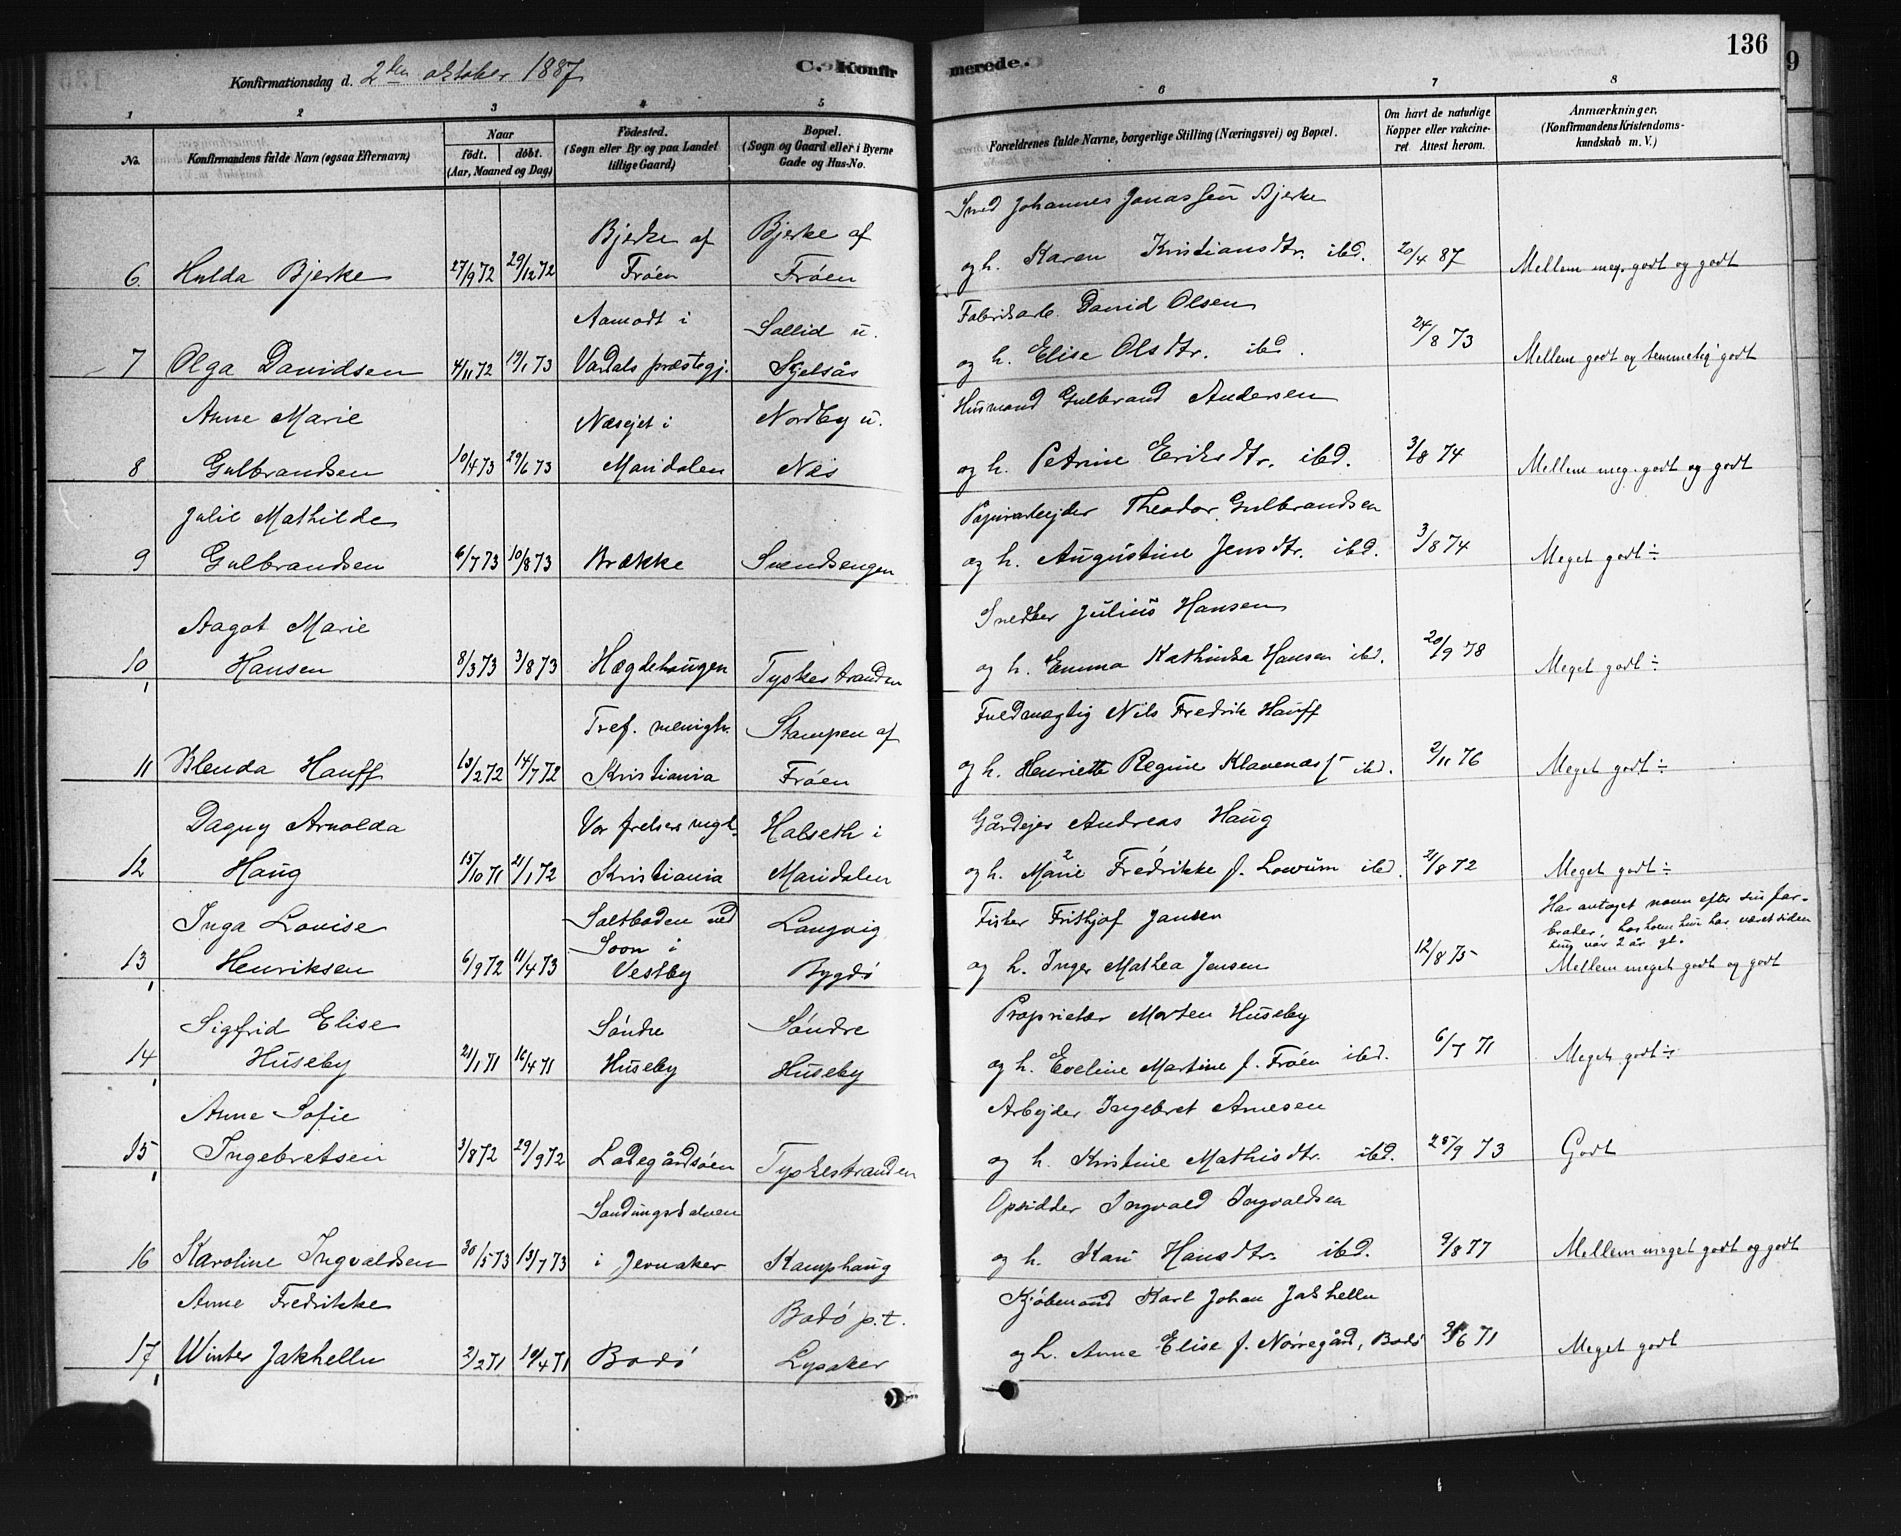 136
Konfirmationsdag d. 2den oktober 1887
C. Konfirmerede.
1 2 3 4 5 6 7 8
No. Konfirmandens fulde Navn (ogsaa Efternavn)
Naar født. døbt. (Aar, Maaned og Dag)
Fødested. (Sogn eller By og paa Landet tillige Gaard)
Bopæl. (Sogn og Gaard eller i Byerne Gade og Hus-No.
Forældrenes fulde Navne, borgerlige Stilling (Næringsvei) og Bopæl.
Om havt de naturlige Kopper eller vakcineret Attest herom.
Anmærkninger. (Konfirmandens Kristendomskundskab m. V.)
Bjerke af Bjerke af Smed Johannes Jonassen Bjerke
6. Hulda Bjerke 27/9 72 29/12 72 Frøen Frøen og h. Karen Kristiansdtr. ibd. 20/4 87 Mellem meg. godt og godt
Aamodt i Sollid u. Fabrikarb. David Olsen
7 Olga Davidsen 4/11 72 19/1 73 Vardals præstegj. Skjelsås og h. Elise Olsdtr. ibd. 24/8 73 Mellem godt og temmelig godt
Anne Marie Næsejet i Nordby u. Husmand Gulbrand Andersen
8 Gulbrandsen 10/4 73 29/6 73 Maridalen Næs og h. Petrine Eriksdtr. ibd. 3/8 74 Mellem meg. godt og godt
Julie Mathilde Papirarbejder Theodor Gulbrandsen
9 Gulbrandsen 6/7 73 10/8 73 Brække Svendsengen og h. Augustine Jensdtr. ibd. 3/8 74 Meget godt ÷
Aagot Marie Snedker Julius Hansen
10 Hansen 8/3 73 3/8 73 Hægdehaugen Tyskestranden og h. Emma Kathinka Hansen ibd. 20/9 78 Meget godt ÷
Tref. menigh. Stampen af Fuldmægtig Nils Fredrik Hauff
11 Blenda Hauff 13/2 72 14/7 72 Kristiania Frøen og h. Henriette Regine Klavenæs ibd. 2/11 76 Meget godt ÷
Dagny Arnolda Vor frelsers mgh. Halseth i Gårdejer Andreas Haug
12 Haug 15/10 71 21/1 72 Kristiania Maridalen og h. Marie Fredrikke f. Lowum ibd. 21/8 72 Meget godt ÷
Inga Lovise Saltboden ved Langvig Fisker Frithjof Jansen Har antaget navn efter sin farbroder, hos hvem hun har været siden hun var 2 år gl.
13 Henriksen 6/9 72 11/4 73 Soon i Vestby Bygdø og h. Inger Mathea Jensen 12/8 75 Mellem meget godt og godt
Sigfrid Elise Søndre Søndre Proprietær Morten Huseby
14 Huseby 21/1 71 16/4 71 Huseby Huseby og h. Eveline Martine f. Frøen ibd. 6/7 71 Meget godt ÷
Anne Sofie Arbejder Ingebret Arnesen
15 Ingebretsen 3/8 72 29/9 72 Ladegårdsøen Tyskestranden og h. Kristine Mathisdtr. ibd. 25/9 73 Godt
Sandungsdalven Opsidder Ingvald Ingvaldsen
16 Karoline Ingvaldsen 30/5 73 13/7 73 i Jevnaker Kamphaug og h. Kari Hansdtr. ibd. 9/8 77 Mellem meget godt og godt
Anne Fredrikke Bodø p.t. Kjøbmand Karl Johan Jakhelln
17 Winter Jakhelln 2/2 71 10/4 71 Bodø Lysaker og h. Anne Elise f. Nørregård, Bodø Meget godt